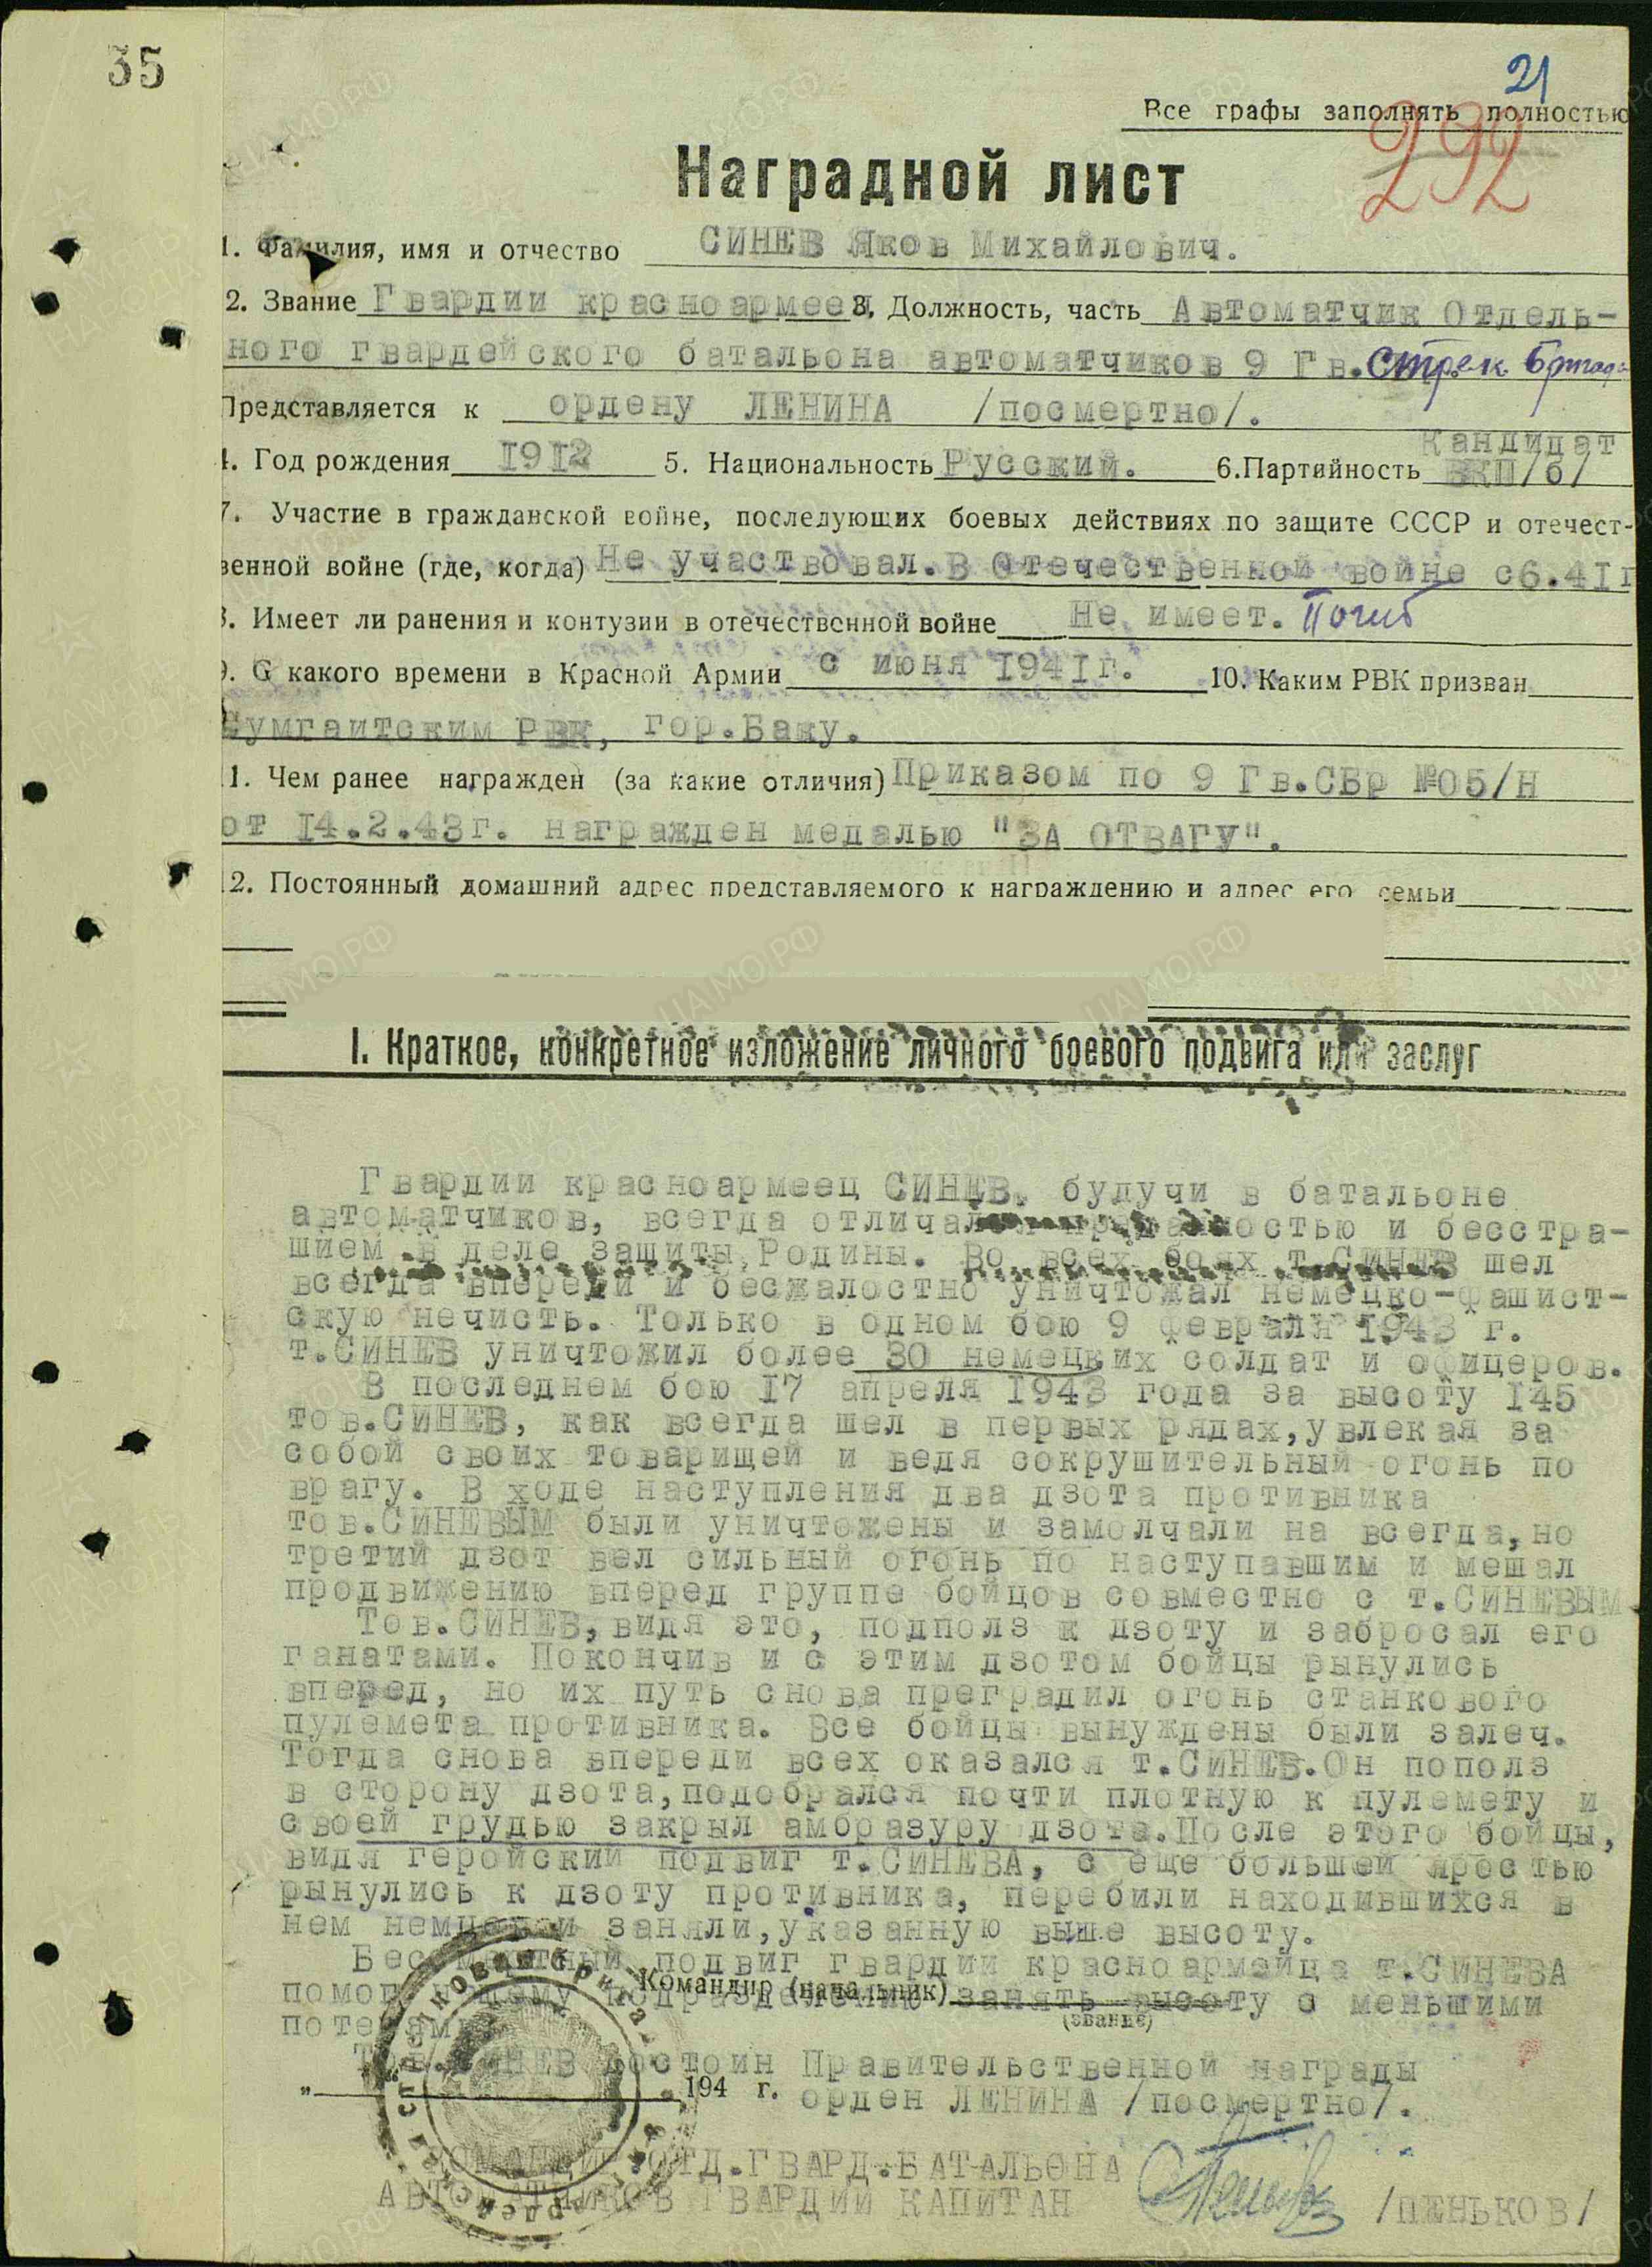 35
21
Все графы заполнять полностью
292
Наградной лист
1. Фамилия, имя и отчество СИНЕВ Яков Михайлович.
2. Звание Гвардии красноармеец 3. Должность, часть Автоматчик Отдель-
ного гвардейского батальона автоматчиков 9 Гв. Стрелк. Бригады
Представляется к ордену ЛЕНИНА /посмертно/.
Кандидат
4. Год рождения 1912 5. Национальность Русский. 6.Партийность ВКП/б/
7. Участие в гражданской войне, последующих боевых действиях по защите СССР и отечест-
венной войне (где, когда) Не участвовал. В Отечественной войне с6.41г
8. Имеет ли ранения и контузии в отечественной войне Не имеет. Погиб
9. С какого времени в Красной Армии с июня 1941г. 10. Каким РВК призван
Сумгаитским РВК, гор.Баку.
11. Чем ранее награжден (за какие отличия) Приказом по 9 Гв.СБр №05/Н
от 14.2.43г. награжден медалью "ЗА ОТВАГУ".
12. Постоянный домашний адрес представляемого к награждению и адрес его семьи
I. Краткое, конкретное изложение личного боевого подвига или заслуг
Гвардии красноармеец СИНЕВ, будучи в батальоне
автоматчиков, всегда отличался преданностью и бесстра-
шием в деле защиты Родины. Во всех боях т.СИНЕВ шел
всегда впереди и бесжалостно уничтожал немецко-фашист-
скую нечисть. Только в одном бою 9 февраля 1943 г.
т.СИНЕВ уничтожил более 30 немецких солдат и офицеров.
В последнем бою 17 апреля 1943 года за высоту 145
тов.СИНЕВ, как всегда шел в первых рядах,увлекая за
собой своих товарищей и ведя сокрушительный огонь по
врагу. В ходе наступления два дзота противника
тов.СИНЕВЫМ были уничтожены и замолчали на всегда,но
третий дзот вел сильный огонь по наступавшим и мешал
продвижению вперед группе бойцов совместно с т.СИНЕВЫМ
Тов.СИНЕВ,видя это, подполз к дзоту и забросал его
ганатами. Покончив и с этим дзотом бойцы рынулись
вперед, но их путь снова преградил огонь станкового
пулемета противника. Все бойцы вынуждены были залеч.
Тогда снова впереди всех оказался т.СИНЕВ.Он пополз
в сторону дзота,подобрался почти плотную к пулемету и
своей грудью закрыл амбразуру дзота.После этого бойцы,
видя геройский подвиг т.СИНЕВА, с еще большей яростью
рынулись к дзоту противника, перебили находившихся в
нем немцев и заняли,указанную выше высоту.
Бессмертный подвиг гвардии красноармейца т.СИНЕВА
Командир (начальник)
помог нашему подразделению занять высоту с меньшими
(звание)
потерями.
Тов.СИНЕВ достоин Правительственной награды
„ " 194 г. орден ЛЕНИНА /посмертно/.
КОМАНДИР ОТД.ГВАРД.БАТАЛЬОНА
АВТОМАТЧИКОВ ГВАРДИИ КАПИТАН /ПЕНЬКОВ/